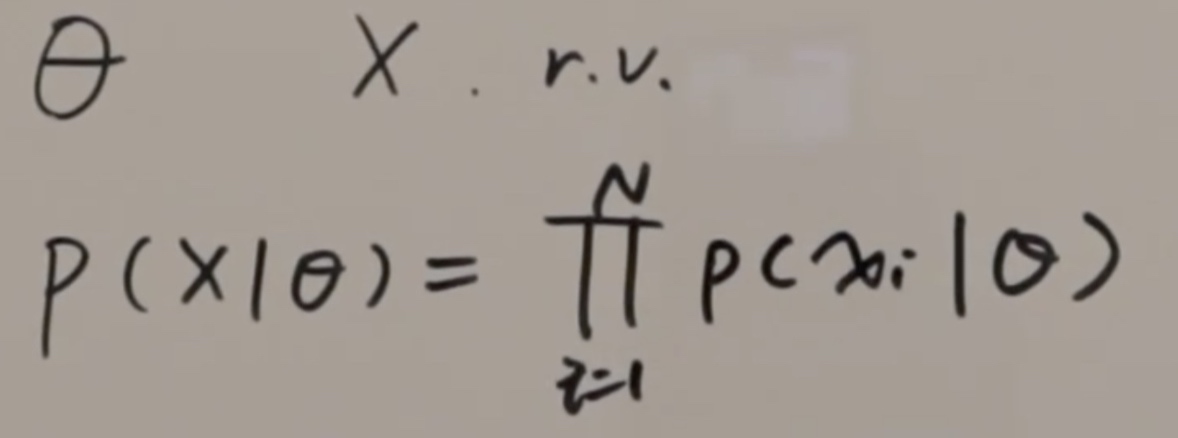 θ X. r.v.
P(X|θ) = ∏_{i=1}^{N} p(x_i|θ)